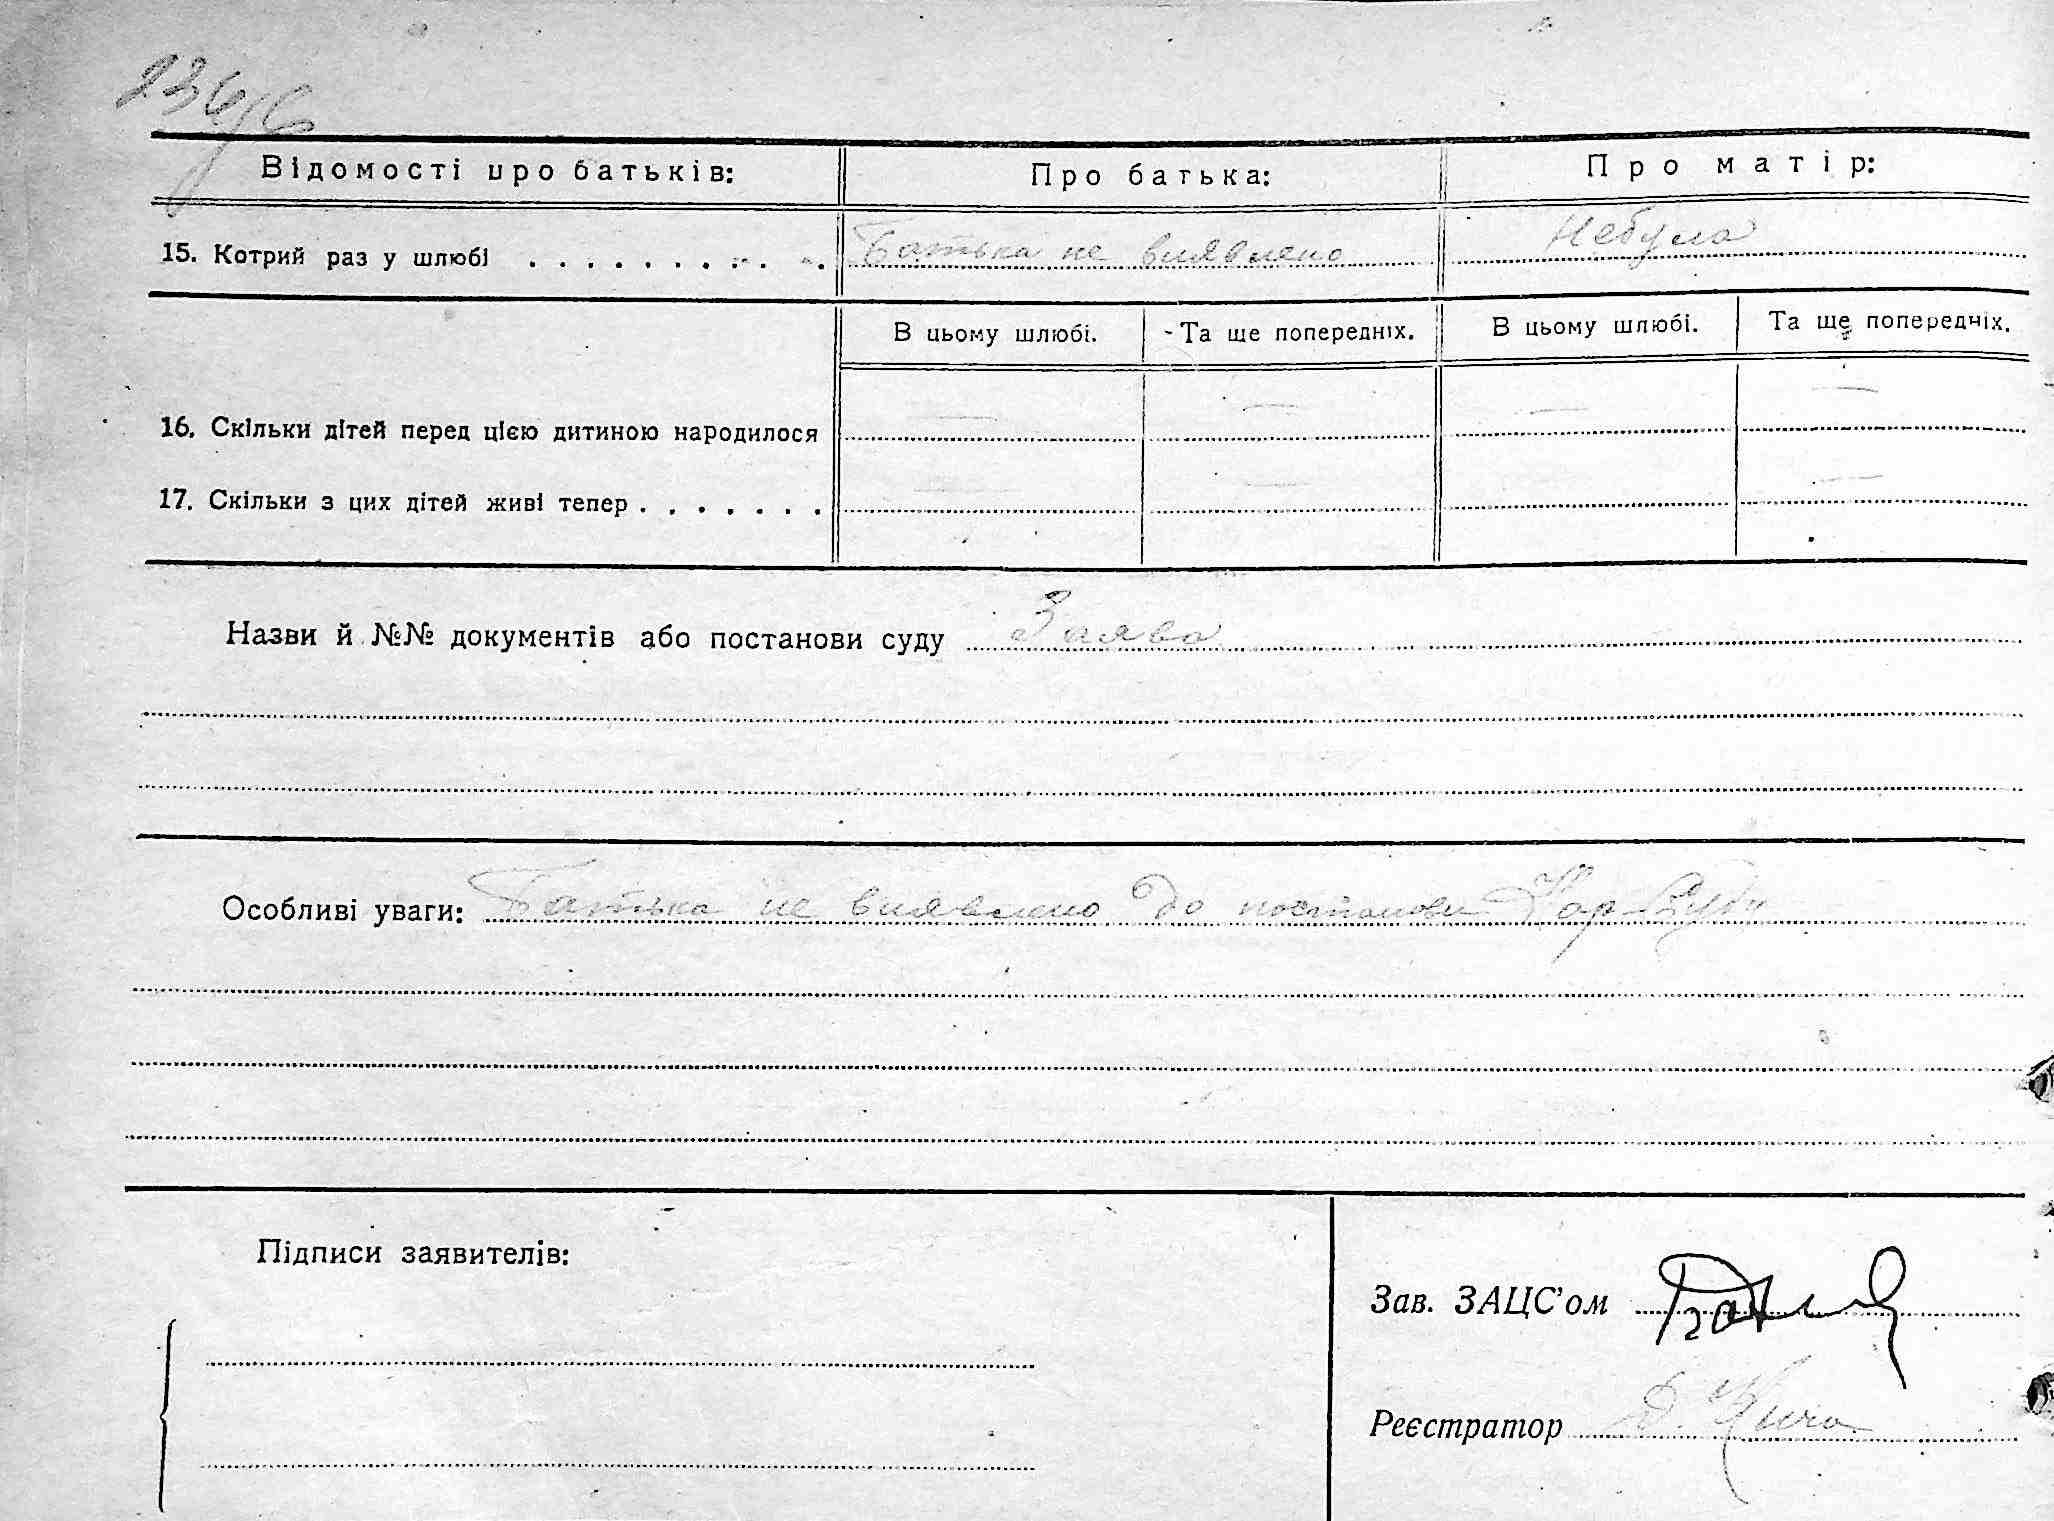 Відомості про батьків: Про батька: Про матір:
15. Котрий раз у шлюбі . . . . . . . . . . . Батька не виявлено Небула
В цьому шлюбі. Та ще попередніх. В цьому шлюбі. Та ще попередніх.
16. Скільки дітей перед цією дитиною народилося — — — —
17. Скільки з цих дітей живі тепер . . . . . . . — — —
Назви й №№ документів або постанови суду Заява
Особливі уваги: Батька не виявлено до постанови Нар-Суду
Підписи заявителів:
Зав. ЗАЦС'ом
Реєстратор Д.